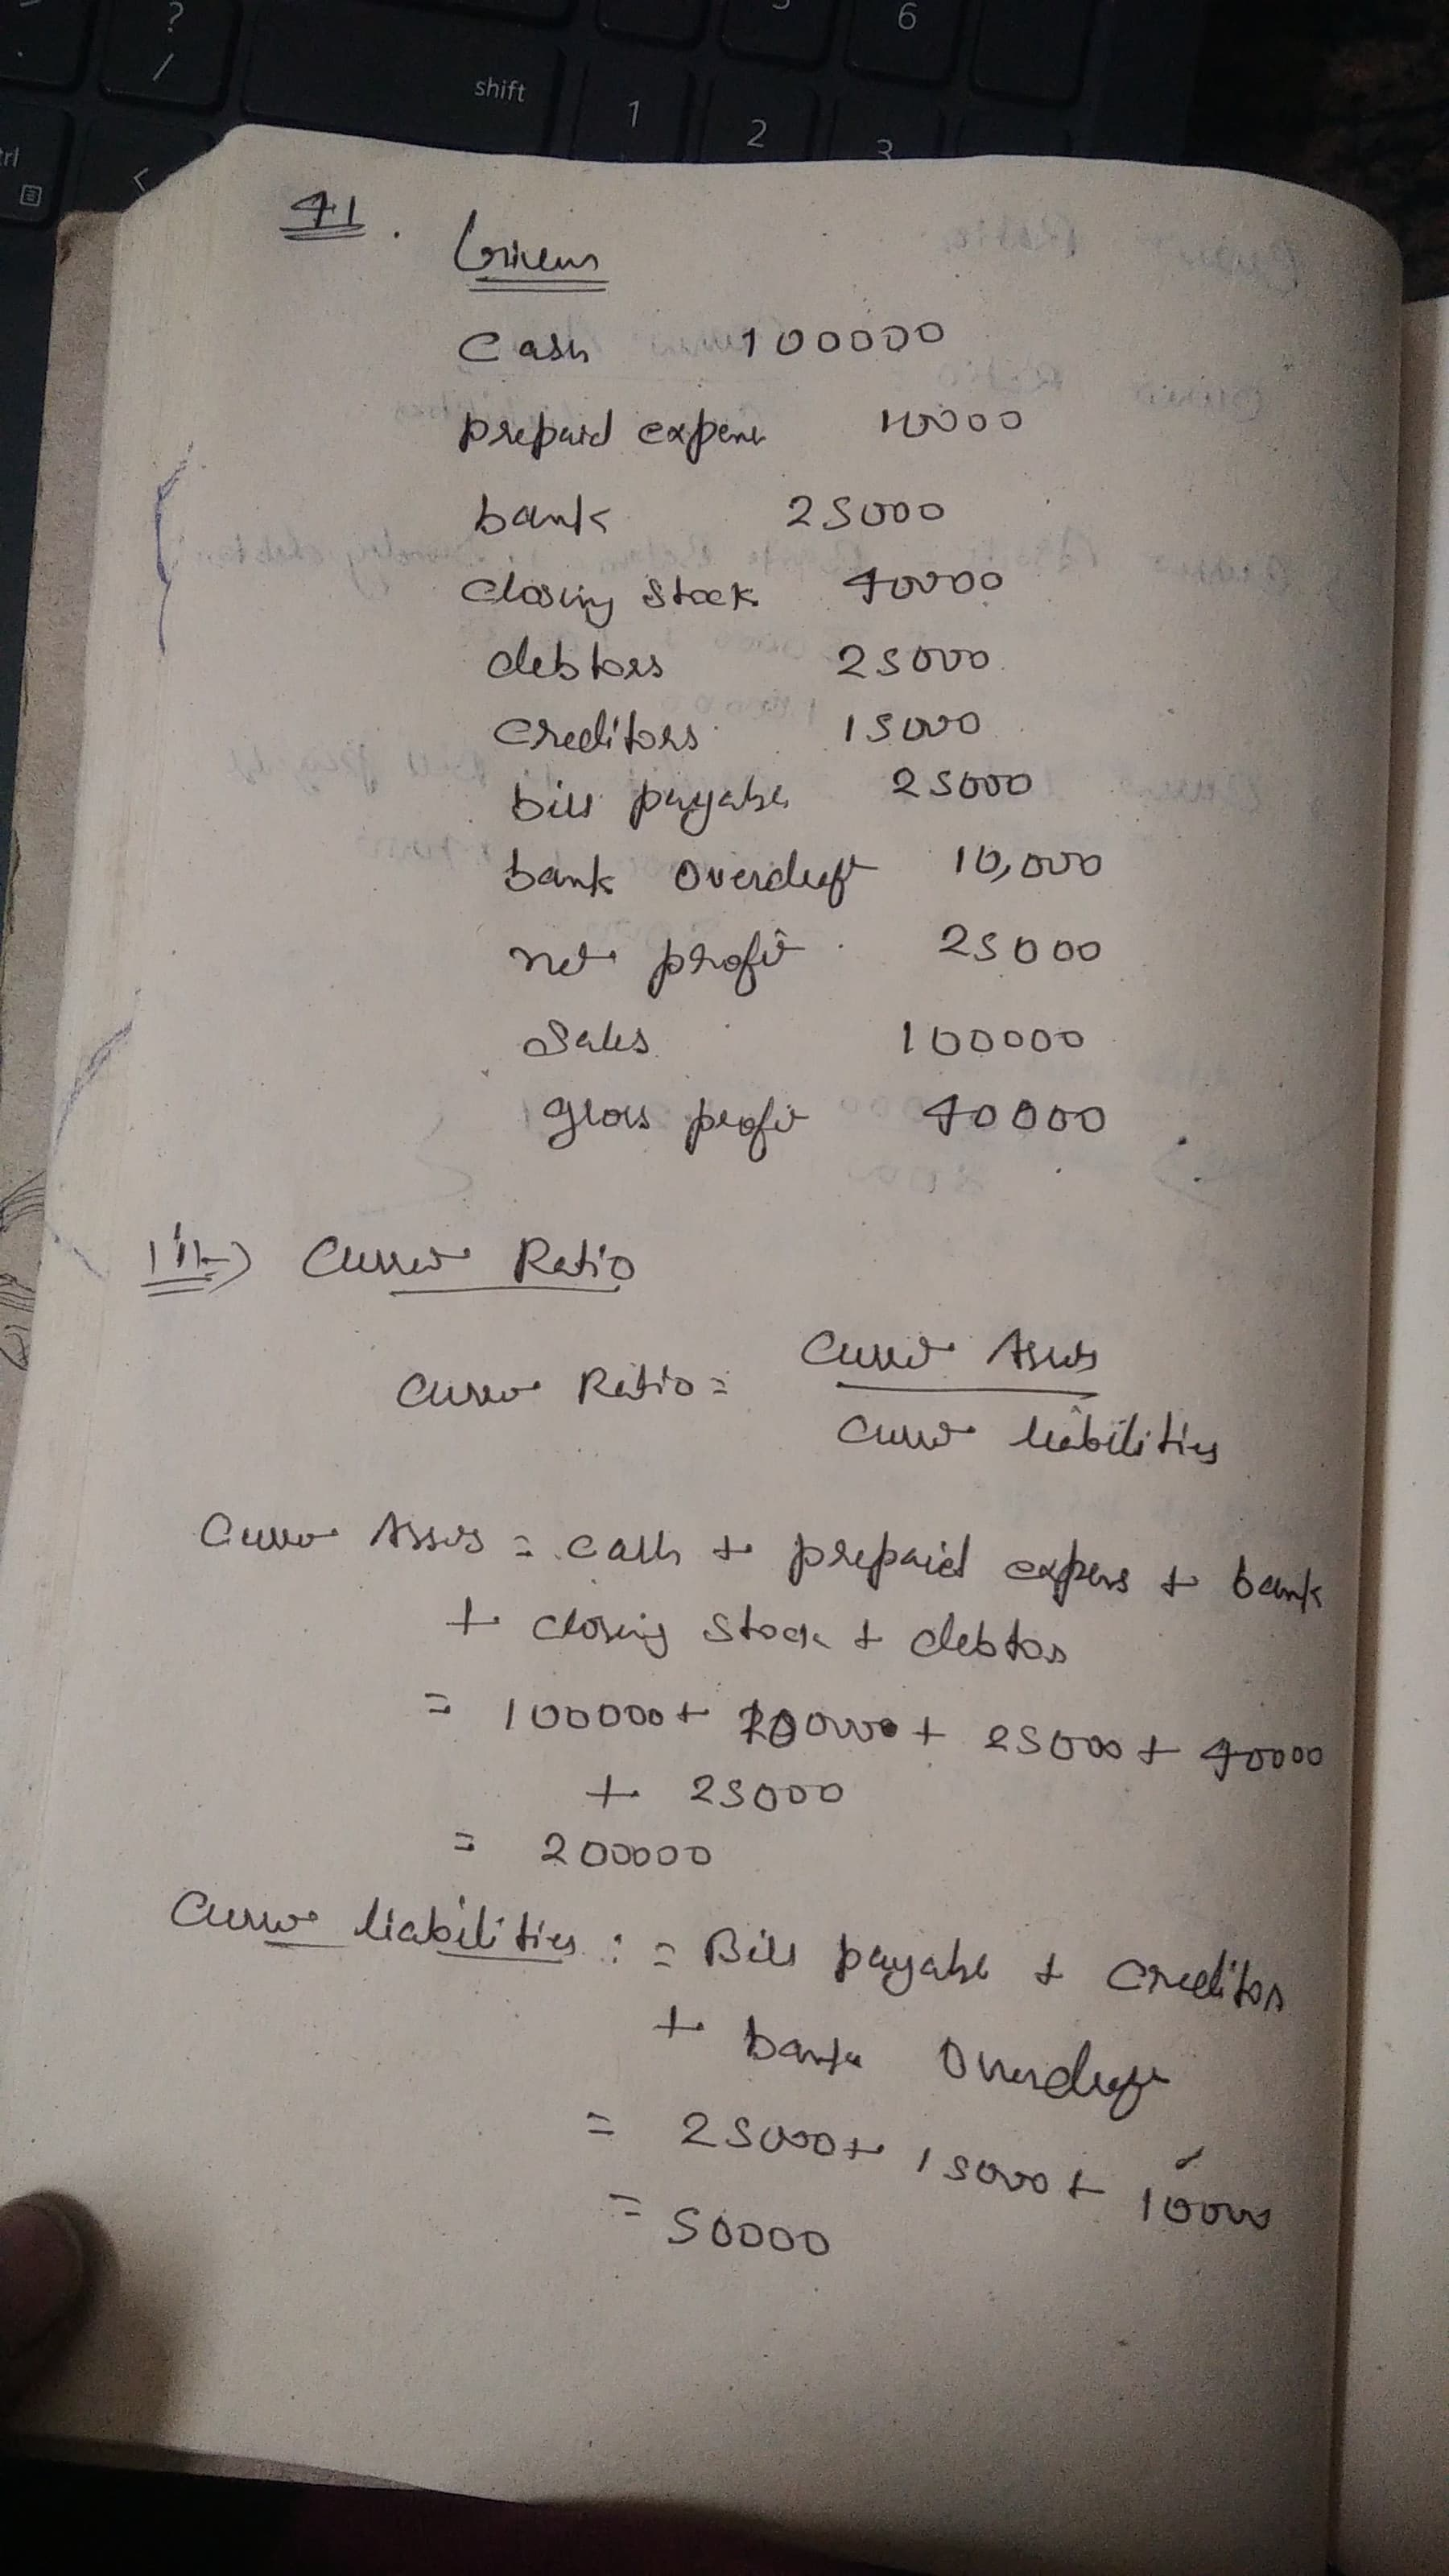 ?
/
6
shift
1
2
3
<
41.
Given
Cash 100000
prepaid expens 10000
bank 25000
closing stock 40000
debtors 25000
creditors 15000
bill payable 25000
bank overdraft 10,000
net profit 25000
Sales 100000
gross profit 40000
iii) Current Ratio
Current Ratio = Current Assets
Current liabilities
Current Assets = cash + prepaid expens + bank
+ closing stock + debtors
= 100000 + 10000 + 25000 + 40000
+ 25000
= 200000
Current liabilities : = Bills payable + creditors
+ bank overdraft
= 25000 + 15000 + 10000
= 50000